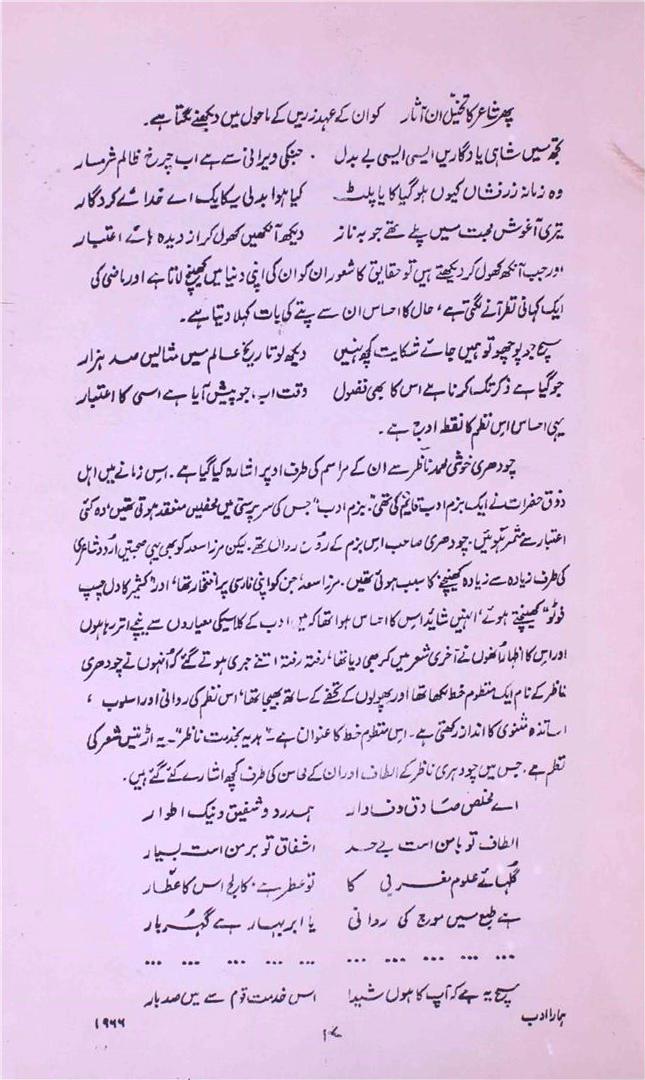 پھر شاعر کا تخیل ان آثار کو ان کے عہد زریں کے ماحول میں دیکھنے لگتا ہے۔
تجھ میں شاہی یادگاریں ایسی ایسی بے بدل جنکی ویرانی سے ہے اب چرخ ظالم شرمسار
وہ زمانہ زرفشاں کیوں ہوگیا کایا پلٹ کیا ہوا بدلی یکایک اے خدائے کردگار
تیری آغوش محبت میں پلے تھے جو بہ ناز دیکھ آنکھیں کھول کر از دیدہ ہائے اعتبار
اور جب آنکھ کھول کر دیکھتے ہیں تو حقایق کا شعور ان کو ان کی اپنی دنیا میں کھینچ لاتا ہے اور ماضی کی
ایک کہانی نظر آنے لگتی ہے، حال کا احساس ان سے پتے کی بات کہلا دیتا ہے۔
سچ جو پوچھو تو ہمیں جائے شکایت کچھ نہیں دیکھ لو تاریخ عالم میں مثالیں صد ہزار
جو گیا ہے ذکر تک کرنا ہے اس کا بھی فضول وقت اب، جو پیش آیا ہے اسی کا اعتبار
یہی احساس اس نظم کا نقطہ اوج ہے۔
چودھری خوشی محمد ناظر سے ان کے مراسم کی طرف اوپر اشارہ کیا گیا ہے۔ اس زمانے میں اہل
ذوق حضرات نے ایک بزم ادب قایم کی تھی، "بزم ادب" جس کی سرپرستی میں محفلیں منعقد ہوتی تھیں، وہ کئی
اعتبار سے مثمر ہوئیں۔ چودھری صاحب اس بزم کے روح رواں تھے۔ لیکن مرزا سعد کو بھی یہی صحبتیں اردو شاعری
کی طرف زیادہ سے زیادہ کھینچنے کا سبب ہوئی تھیں۔ مرزا سعد، جن کو اپنی فارسی پر افتخار تھا، اور "کشمیر کا دل چسپ
فوٹو" کھینچتے ہوئے، انہیں شاید اس کا احساس ہوا تھا کہ میں ادب کے کلاسیکی معیاروں سے نیچے اتر رہا ہوں
اور اس کا اظہار انھوں نے آخری شعر میں کر بھی دیا تھا، رفتہ رفتہ اتنے جری ہوتے گئے کہ انہوں نے چودھری
ناظر کے نام ایک منظوم خط لکھا تھا اور پھولوں کے تحفے کے ساتھ بھیجا تھا، اس نظم کی روانی اور اسلوب،
اساتذہ مثنوی کا انداز رکھتی ہے۔ اس منظوم خط کا عنوان ہے۔ "ہدیہ بخدمت ناظر"۔ یہ اڑتیس شعر کی
نظم ہے۔ جس میں چودھری ناظر کے الطاف اور ان کے محاسن کی طرف کچھ اشارے کئے گئے ہیں۔
اے مخلص صادق و فادار ہمدرد و شفیق و نیک اطوار
الطاف تو بامن است بے حد اشفاق تو برمن است بسیار
گلہائے علوم مغربی کا تو عطر ہے، کالج اس کا عطار
ہے طبع میں موج کی روانی یا ابر بہار ہے گہر بار
... ... ... ... ... ... ... ... ... ...
سچ یہ ہے کہ آپ کا ہوں شیدا اس خدمت قوم سے میں صد بار
ہمارا ادب
۱۹۶۶
۱۷